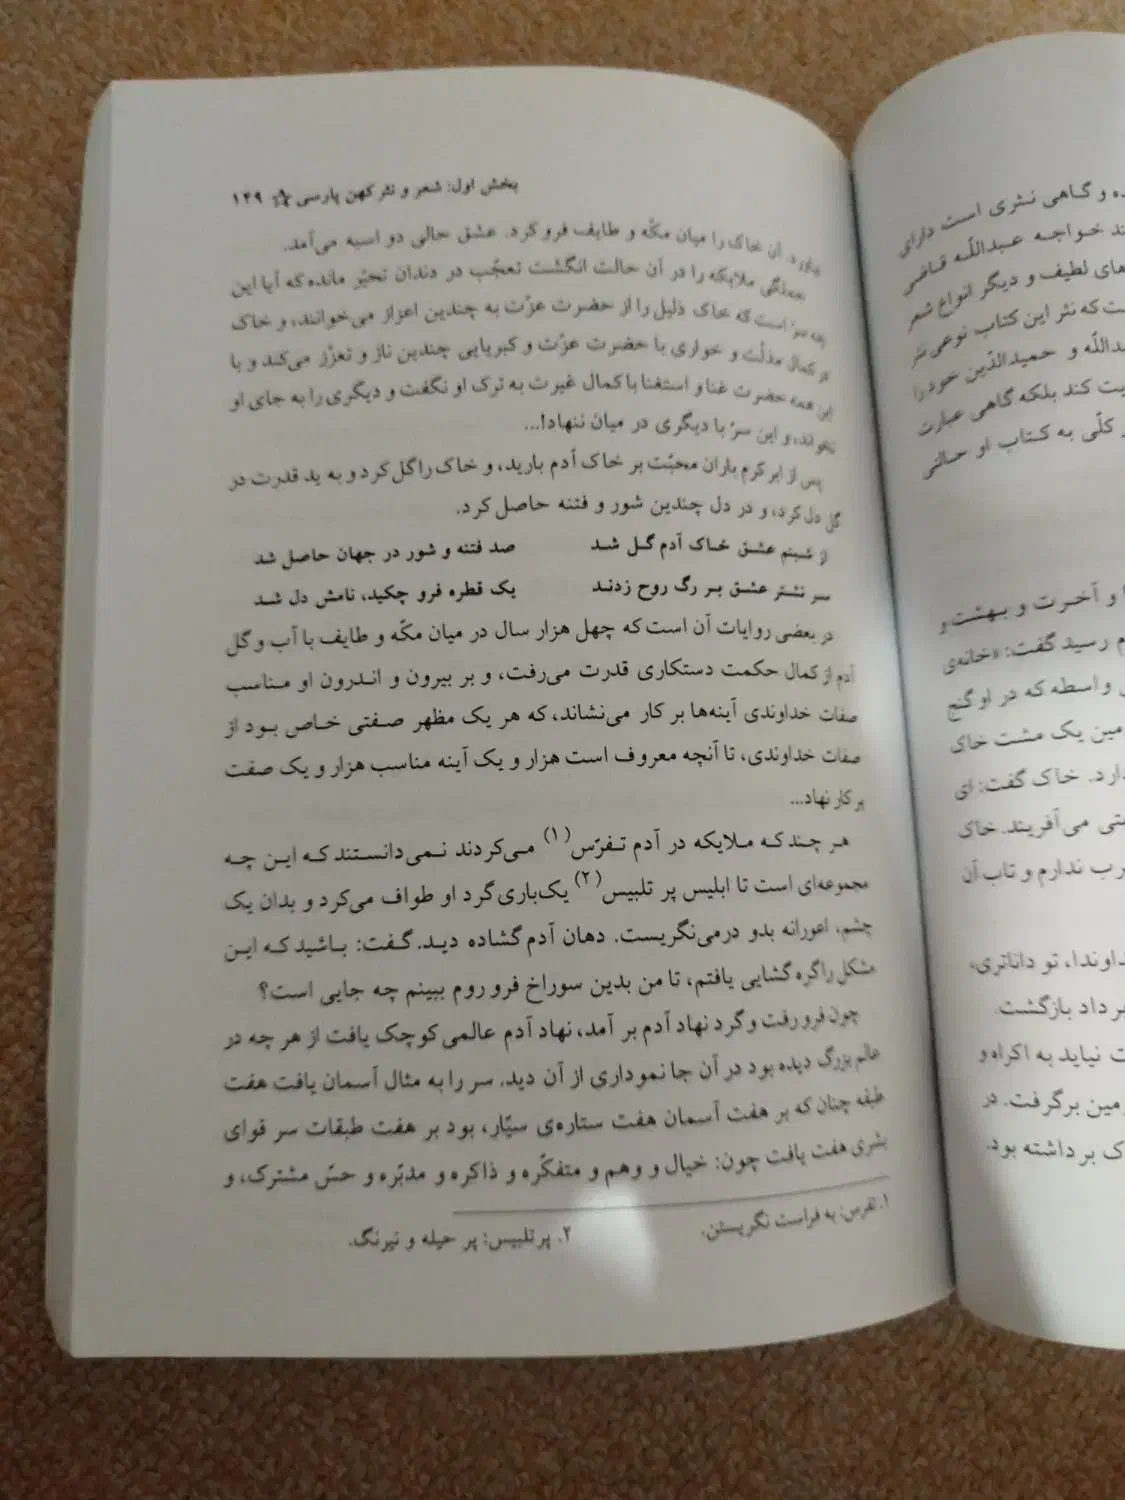 بخش اول: شعر و نثر کهن پارسی ☆ ۱۴۹
بیاورد. آن خاک را میان مکّه و طایف فرو کرد. عشق حالی دو اسبه می‌آمد.
جملگی ملایکه را در آن حالت انگشت تعجّب در دندان تحیّر مانده که آیا این
چه سرّ است که خاک ذلیل را از حضرت عزّت به چندین اعزاز می‌خوانند، و خاک
در کمال مذلّت و خواری با حضرت عزّت و کبریایی چندین ناز و تعزّز می‌کند و با
این همه حضرت غنا و استغنا با کمال غیرت به ترک او نگفت و دیگری را به جای او
نخواند، و این سرّ با دیگری در میان ننهاد!...
پس از ابر کرم باران محبّت بر خاک آدم بارید، و خاک را گل کرد و به ید قدرت در
گل دل کرد، و در دل چندین شور و فتنه حاصل کرد.
از شبنم عشق خاک آدم گل شد صد فتنه و شور در جهان حاصل شد
سر نشتر عشق بر رگ روح زدند یک قطره فرو چکید، نامش دل شد
در بعضی روایات آن است که چهل هزار سال در میان مکّه و طایف با آب و گل
آدم از کمال حکمت دستکاری قدرت می‌رفت، و بر بیرون و اندرون او مناسب
صفات خداوندی آینه‌ها بر کار می‌نشاند، که هر یک مظهر صفتی خاص بود از
صفات خداوندی، تا آنچه معروف است هزار و یک آینه مناسب هزار و یک صفت
بر کار نهاد...
هر چند که ملایکه در آدم تفرّس(۱) می‌کردند نمی‌دانستند که این چه
مجموعه‌ای است تا ابلیس پر تلبیس(۲) یک‌باری گرد او طواف می‌کرد و بدان یک
چشم، اعورانه بدو درمی‌نگریست. دهان آدم گشاده دید. گفت: باشید که این
مشکل را گره گشایی یافتم، تا من بدین سوراخ فرو روم ببینم چه جایی است؟
چون فرو رفت و گرد نهاد آدم بر آمد، نهاد آدم عالمی کوچک یافت از هر چه در
عالم بزرگ دیده بود در آن جا نموداری از آن دید. سر را به مثال آسمان یافت هفت
طبقه چنان که بر هفت آسمان هفت ستاره‌ی سیّار، بود بر هفت طبقات سر قوای
بشری هفت یافت چون: خیال و وهم و متفکّره و ذاکره و مدبّره و حسّ مشترک، و
۱. تفرس: به فراست نگریستن. ۲. پرتلبیس: پر حیله و نیرنگ.
ه و گاهی نثری است دارای
ند خواجه عبداللّه قاضی
های لطیف و دیگر انواع شعر
ت که نثر این کتاب نوعی نثر
دالله و حمیدالدّین خود را
یت کند بلکه گاهی عبارت
ر کلّی به کتاب او حالتی
ا و آخرت و بهشت و
م رسید گفت: «خانه‌ی
ی واسطه که در او گنج
مین یک مشت خاک
دارد. خاک گفت: ای
تی می‌آفریند. خاک
رب ندارم و تاب آن
داوندا، تو داناتری،
بر داد بازگشت.
ت نیاید به اکراه و
مین برگرفت. در
ک برداشته بود.